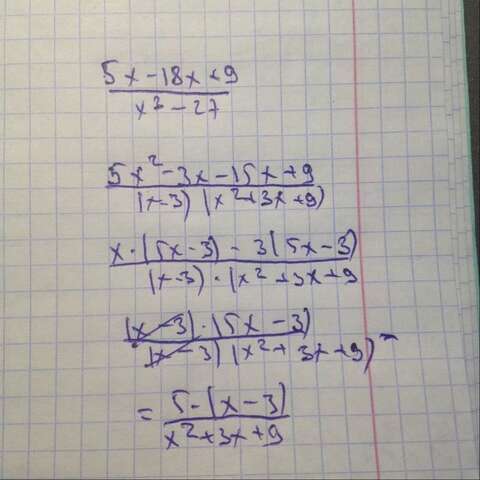 5x-18x+9
x³-27
5x²-3x-15x+9
(x-3) (x²+3x+9)
x·(5x-3)-3(5x-3)
(x-3)·(x²+3x+9
(x-3)·(5x-3)
(x-3)(x²+3x+9) =
= 5-(x-3)
x²+3x+9